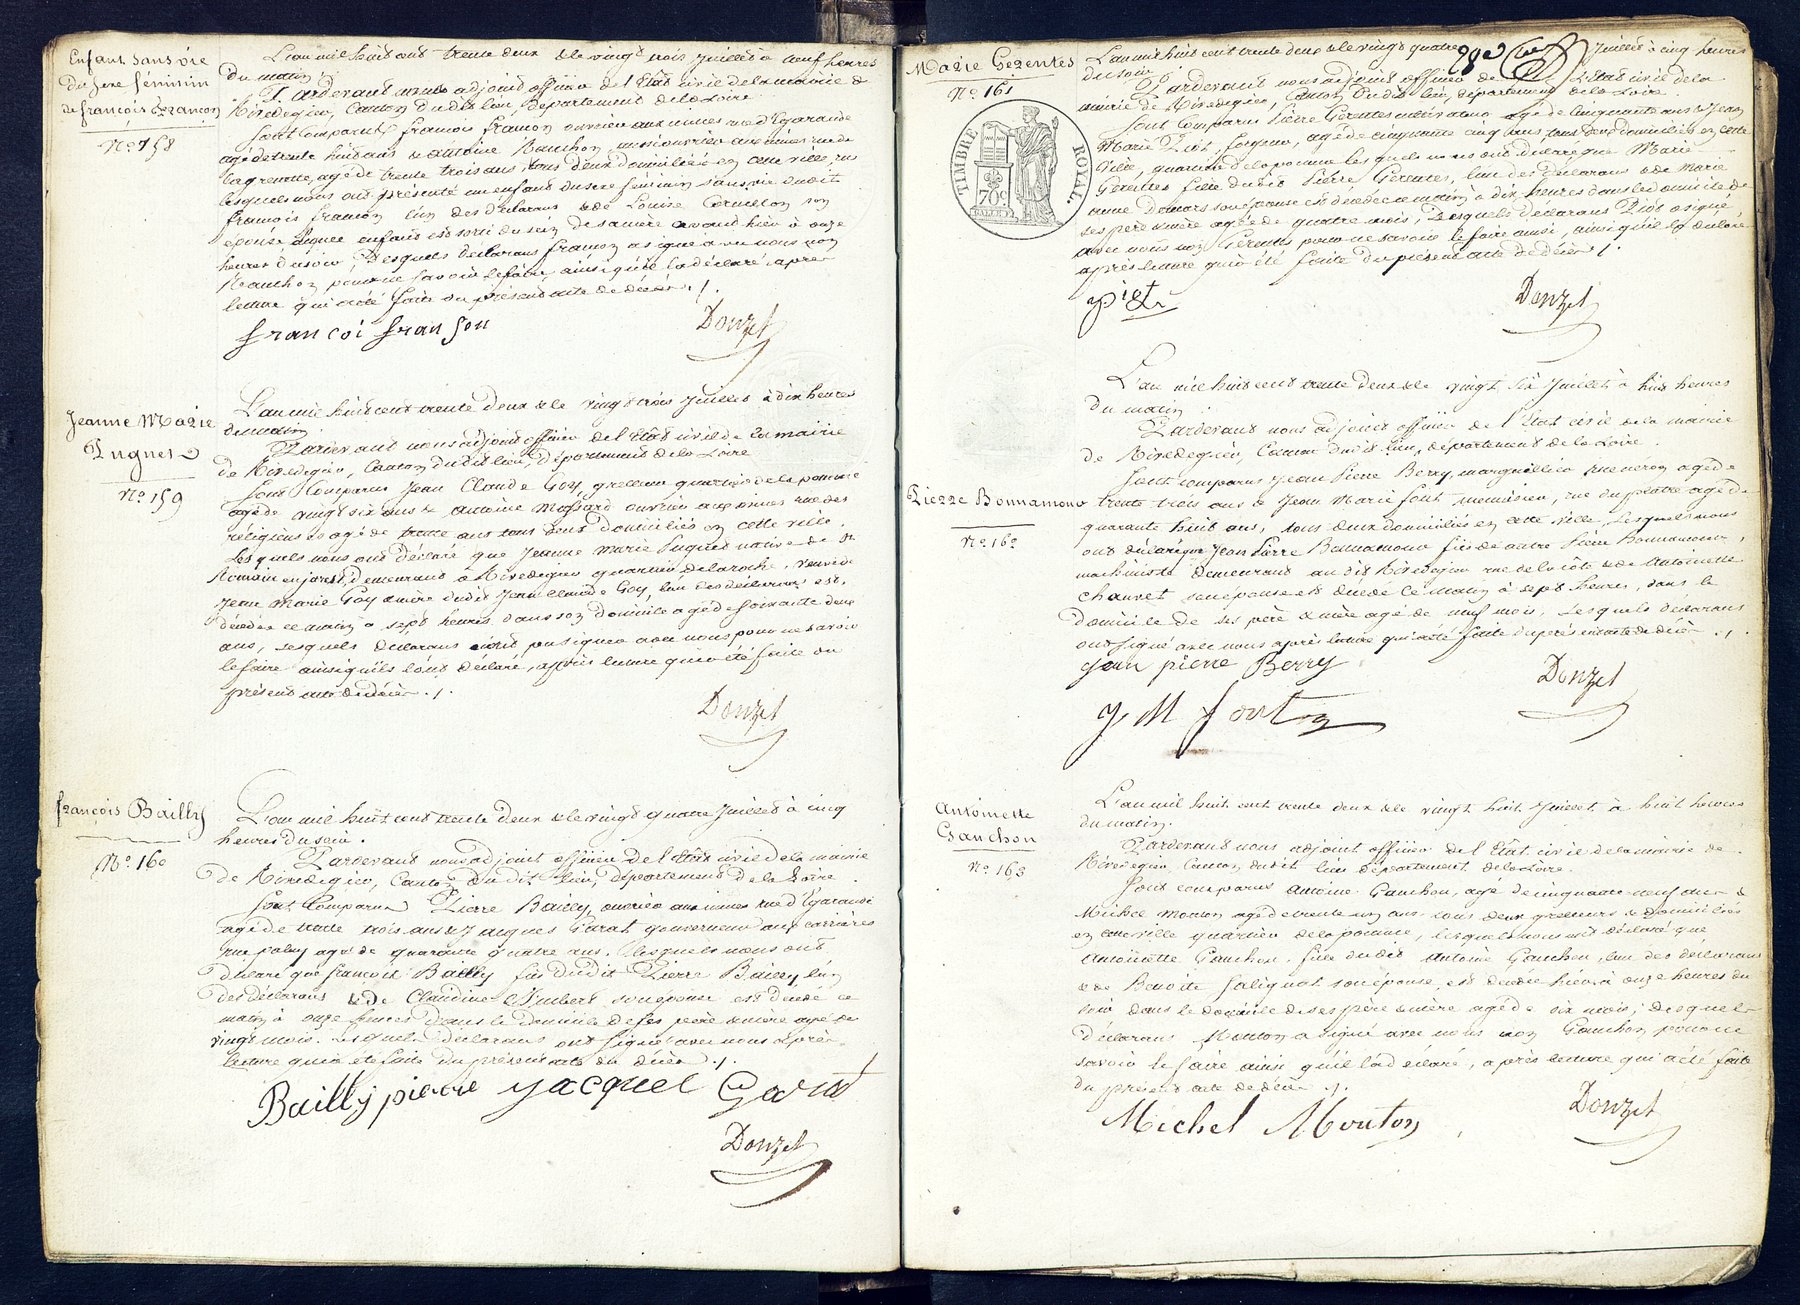 Enfant sans vie
Du sexe féminin
de françois françon
N° 158
L'an mil huit cent trente deux & le vingt trois Juillet à neuf heures
Du matin
Pardevant nous adjoint officier de l'Etat civil de la mairie de
Rivedegier, Canton Dudit lieu, Département de la Loire
Sont Comparus françois françon ouvrier aux mines rue d'Egarande
agé de trente huit ans & antoine Nauchon, aussi ouvrier aux mines rue de
la grenette, agé de trente trois ans, tous deux domiciliés en cette ville,
lesquels nous ont présenté un enfant du sexe féminin sans vie dudit
françois françon l'un des déclarans & de Louise Cornillon son
épouse lequel enfant est sorti du sein de sa mère avant hier à onze
heures du soir, Desquels déclarans françon a signé avec nous non
Nauchon pour ne savoir le faire ainsi qu'il l'a déclaré après
lecture qui a été faite du présent acte de décès ./.
francoi franson
Donzel
Jeanne Marie
Pugnet
N° 159
L'an mil huit cent trente deux & le vingt trois Juillet à dix heures
du matin
Pardevant nous adjoint officier de l'Etat civil de la mairie
de Rivedegier, Canton Dudit lieu, Département de la Loire
Sont Comparus Jean Claude Goy, greleur quartier de la pomme
agé de vingt six ans & antoine Massard ouvrier aux mines rue des
religieuses agé de trente ans tous deux domiciliés en cette ville.
Lesquels nous ont déclaré que Jeanne Marie Pugnet native de St
Romain en jarest, demeurant à Rivedegier quartier de la roche, veuve de
Jean Marie Goy & mère dudit Jean Claude Goy, l'un des déclarans est
décédée ce matin à sept heures dans son domicile agée de soixante deux
ans, lesquels déclarans n'ont pu signer avec nous pour ne savoir
le faire ainsi qu'ils l'ont déclaré, après lecture qui a été faite du
présent acte de décès ./.
Donzel
françois Bailly
N° 160
L'an mil huit cent trente deux & le vingt quatre Juillet à cinq
heures Du soir.
Pardevant nous adjoint officier de l'Etat civil de la mairie
de Rivedegier, Canton Du dit lieu, département de la Loire.
Sont Comparus Pierre Bailly, ouvrier aux mines rue d'Egarande
agé de trente trois ans & Jacques Garat gouverneur aux carrières
rue agé de quarante quatre ans. Lesquels nous ont
déclaré que françois Bailly fils dudit Pierre Bailly l'un
des déclarans & de Claudine Imbert son épouse est décédé ce
matin à onze heures dans le domicile de ses père & mère agé de
vingt mois. Lesquels déclarans ont signé avec nous après
lecture qui a été faite du présent acte de décès ./.
Bailly pierre Jacques Garat
Donzel
Marie Gerentes
N° 161
TIMBRE ROYAL
70 c
L'an mil huit cent trente deux & le vingt quatre Juillet à cinq heures
du soir
Pardevant nous adjoint officier de l'Etat civil de la
mairie de Rivedegier, Canton Dudit lieu, département de la Loire.
Sont Comparus Pierre Gerentes agé de cinquante ans & Jean
Marie Piot, forgeur, agé de cinquante cinq ans tous deux domiciliés en cette
ville, quartier de la pomme lesquels nous ont déclaré que Marie
Gerentes fille dudit Pierre Gerentes, l'un des déclarans & de Marie
anne Damars son épouse est décédée ce matin à dix heures dans le domicile de
ses père & mère agée de quatre mois, Desquels déclarans Piot a signé
avec nous non Gerentes pour ne savoir le faire aussi, ainsi qu'il l'a déclaré
après lecture qui a été faite du présent acte de décès ./.
piot
Donzel
Pierre Bonnamour
N° 162
L'an mil huit cent trente deux & le vingt six Juillet à huit heures
Du matin
Pardevant nous adjoint officier de l'Etat civil de la mairie
de Rivedegier, Canton dudit lieu, département de la Loire.
Sont comparus Jean Pierre Berry, marguillier agé de
trente trois ans & Jean Marie font menuisier, rue du agé de
quarante huit ans, tous deux domiciliés en cette ville, Lesquels nous
ont déclaré que Jean Pierre Bonnamour fils de autre Pierre Bonnamour,
machiniste demeurant au dit Rivedegier rue de la côte & de Antoinette
chauvet son épouse est décédé ce matin à sept heures, dans le
domicile de ses père & mère agé de neuf mois, Lesquels déclarans
ont signé avec nous après lecture qui a été faite du présent acte de décès ./.
Jean pierre Berry
Donzel
J M font
Antoinette
Ganchon
N° 163
L'an mil huit cent trente deux & le vingt huit Juillet à huit heures
du matin.
Pardevant nous adjoint officier de l'Etat civil de la mairie de
Rivedegier, Canton dudit lieu département de la Loire.
Sont comparus Antoine Ganchon, agé de cinquante neuf ans &
Michel Mouton agé de trente un ans tous deux greleurs & domiciliés
en cette ville quartier de la pomme, lesquels nous ont déclaré que
Antoinette Ganchon, fille dudit Antoine Ganchon, l'un des déclarans
& de Benoite Salignat son épouse, est décédée hier à onze heures du
soir dans le domicile de ses père & mère agée de six mois, desquels
déclarans Mouton a signé avec nous non Ganchon pour ne
savoir le faire ainsi qu'il l'a déclaré, après lecture qui a été faite
du présent acte de décès ./.
Michel Mouton
Donzel